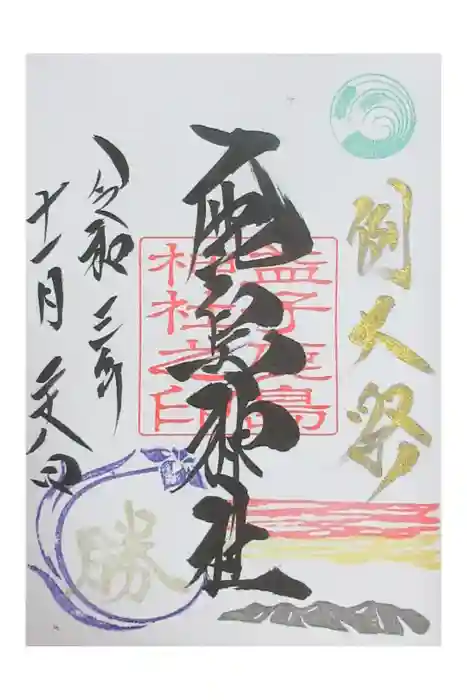 例大祭
鹿島神社
益子鹿島
神社之印
令和三年
十一月 八日
勝